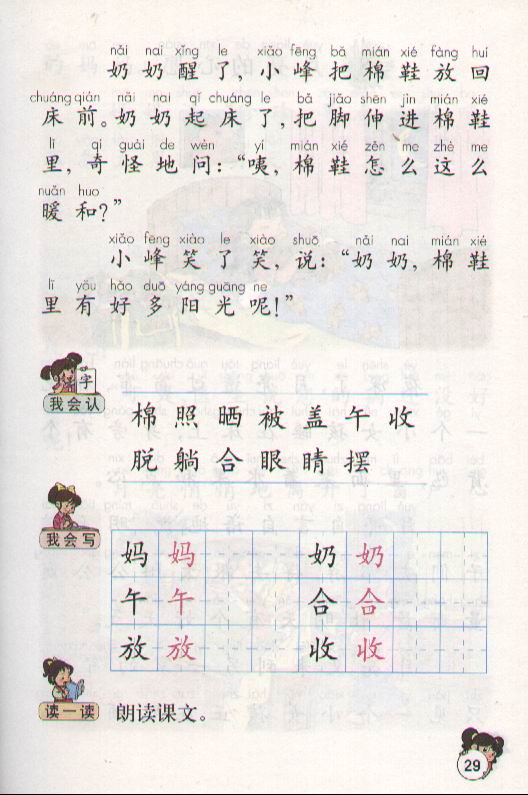 nǎi nai xǐng le xiǎo fēng bǎ mián xié fàng huí
奶奶醒了，小峰把棉鞋放回
chuáng qián nǎi nai qǐ chuáng le bǎ jiǎo shēn jìn mián xié
床前。奶奶起床了，把脚伸进棉鞋
lǐ qí guài de wèn yí mián xié zěn me zhè me
里，奇怪地问：“咦，棉鞋怎么这么
nuǎn huo
暖和？”
xiǎo fēng xiào le xiào shuō nǎi nai mián xié
小峰笑了笑，说：“奶奶，棉鞋
lǐ yǒu hǎo duō yáng guāng ne
里有好多阳光呢！”
字
我会认
棉照晒被盖午收
脱躺合眼睛摆
我会写
妈 妈 奶 奶
午 午 合 合
放 放 收 收
读一读
朗读课文。
29